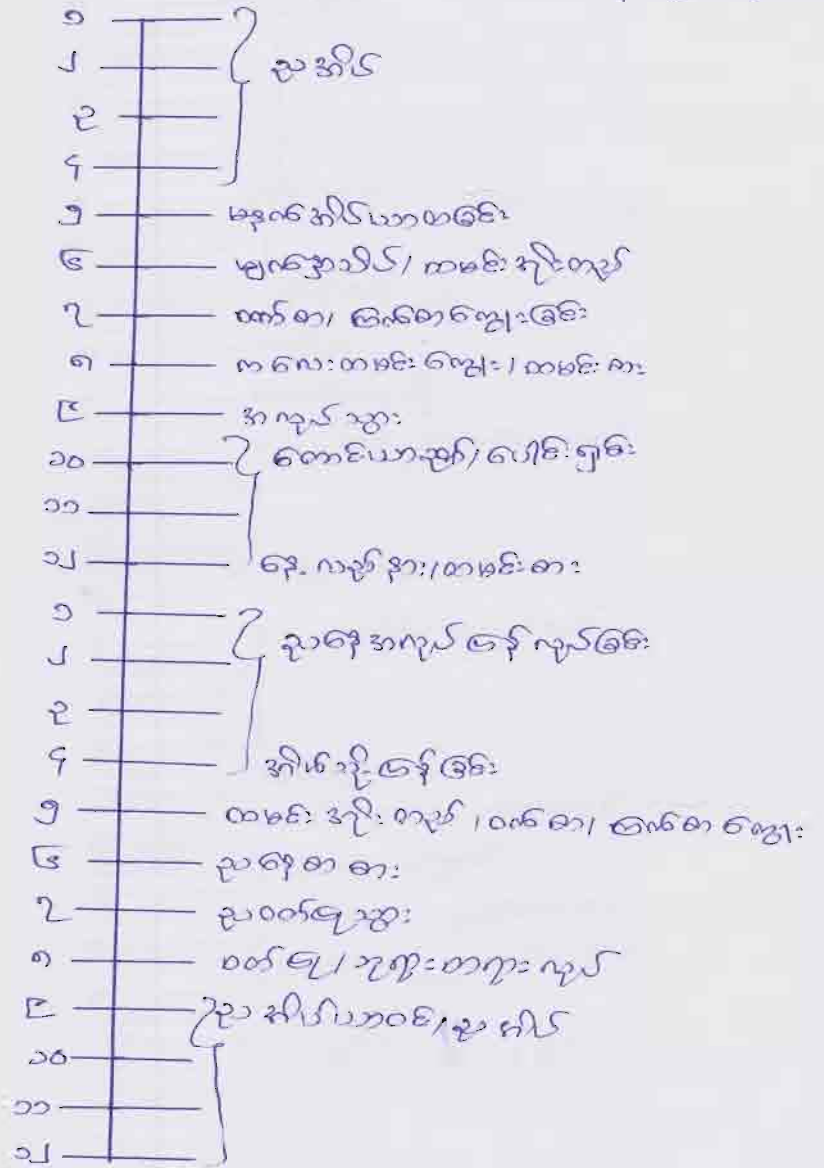 ၁
၂ ညအိပ်
၃
၄
၅ မနက်အိပ်ယာထခြင်း
၆ မျက်နှာသစ်/ ထမင်းအိုးတည်
၇ ဝက်စာ/ ကြက်စာကျွေးခြင်း
၈ ကလေးထမင်းကျွေး/ ထမင်းစား
၉ အလုပ်သွား
၁၀ တောင်ယာခုတ်/ ပေါင်းရှင်း
၁၁
၁၂ နေ့လည်နား/ထမင်းစား
၁
၂ ညနေအလုပ်ပြန်လုပ်ခြင်း
၃
၄ အိမ်သို့ပြန်ခြင်း
၅ ထမင်းအိုးတည်/ ဝက်စာ/ ကြက်စာကျွေး
၆ ညနေစာစား
၇ ညဝတ်ပြုသွား
၈ ဝတ်ပြု/ ဘုရားတရားလုပ်
၉ ည အိပ်ယာဝင်/ညအိပ်
၁၀
၁၁
၁၂